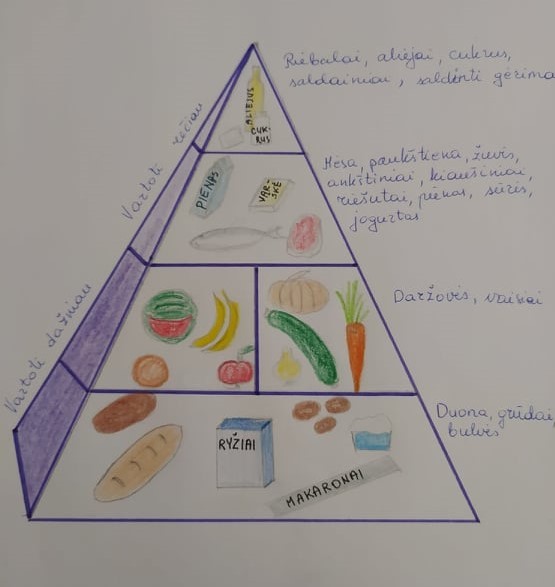 Riebalai, aliejai, cukrus,
saldainiai, saldinti gėrimai
ALIEJUS
CUK-
RUS
Vartoti rečiau
Mėsa, paukštiena, žuvis,
ankštiniai, kiaušiniai,
riešutai, pienas, sūris,
jogurtas
PIENAS
VAR-
ŠKĖ
Vartoti dažniau
Daržovės, vaisiai
Duona, grūdai,
bulvės
RYŽIAI
MAKARONAI